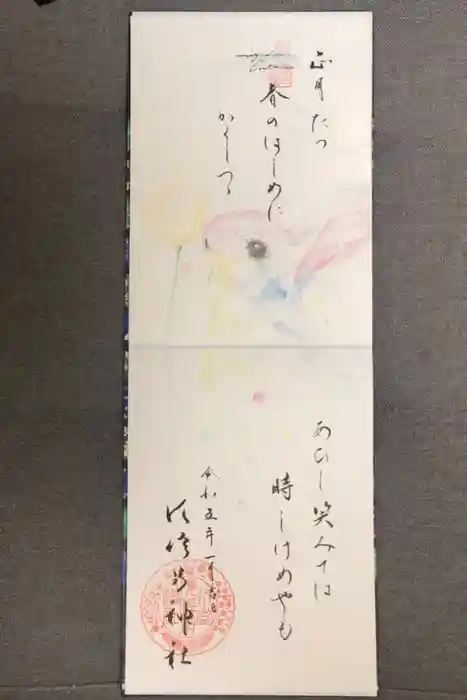 正月たつ
春のはじめに
かくしつつ
あひし笑みては
時しけめやも
令和五年一月吉日
神社